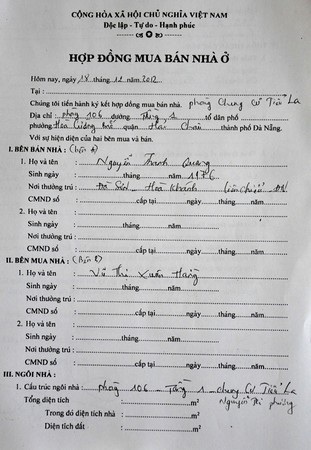 CỘNG HÒA XÃ HỘI CHỦ NGHĨA VIỆT NAM
Độc lập - Tự do - Hạnh phúc
HỢP ĐỒNG MUA BÁN NHÀ Ở
Hôm nay, ngày 18 tháng 12 năm 2012
Tại :
Chúng tôi tiến hành ký kết hợp đồng mua bán nhà. phòng Chung Cư Tiểu La
Địa chỉ : phòng 106 đường Tầng 1 tổ dân phố
phường Hoà Cường quận Hải Châu thành phố Đà Nẵng.
Với sự hiện diện của hai bên mua và bán.
I. BÊN BÁN NHÀ : (Bên A)
1. Họ và tên : Nguyễn Thanh Quang
Sinh ngày : tháng năm 1976
Nơi thường trú : Đà Sơn - Hoà Khánh Liên Chiểu - ĐN
CMND số : cấp tại ngày tháng năm
2. Họ và tên :
Sinh ngày : tháng năm
Nơi thường trú :
CMND số : cấp tại ngày tháng năm
II. BÊN MUA NHÀ : (Bên B)
1. Họ và tên : Vũ Thị Xuân Hằng
Sinh ngày : tháng năm
Nơi thường trú :
CMND số : cấp tại ngày tháng năm
2. Họ và tên :
Sinh ngày : tháng năm
Nơi thường trú :
CMND số : cấp tại ngày tháng năm
III. NGÔI NHÀ :
1. Cấu trúc ngôi nhà : phòng 106 - Tầng 1 - chung cư Tiểu La
Tổng diện tích : m² Nguyễn Tri phương
Trong đó diện tích nhà : m²
Diện tích đất : m²